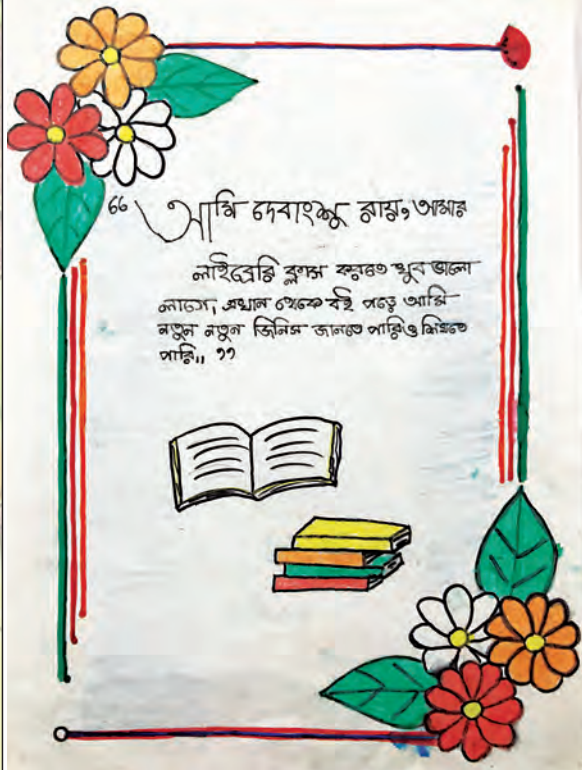 “আমি দেবাংশু রায়, আমার
লাইব্রেরি ক্লাস করতে খুব ভালো
লাগে, এখান থেকে বই পড়ে আমি
নতুন নতুন জিনিস জানতে পারি ও শিখতে
পারি।। ”